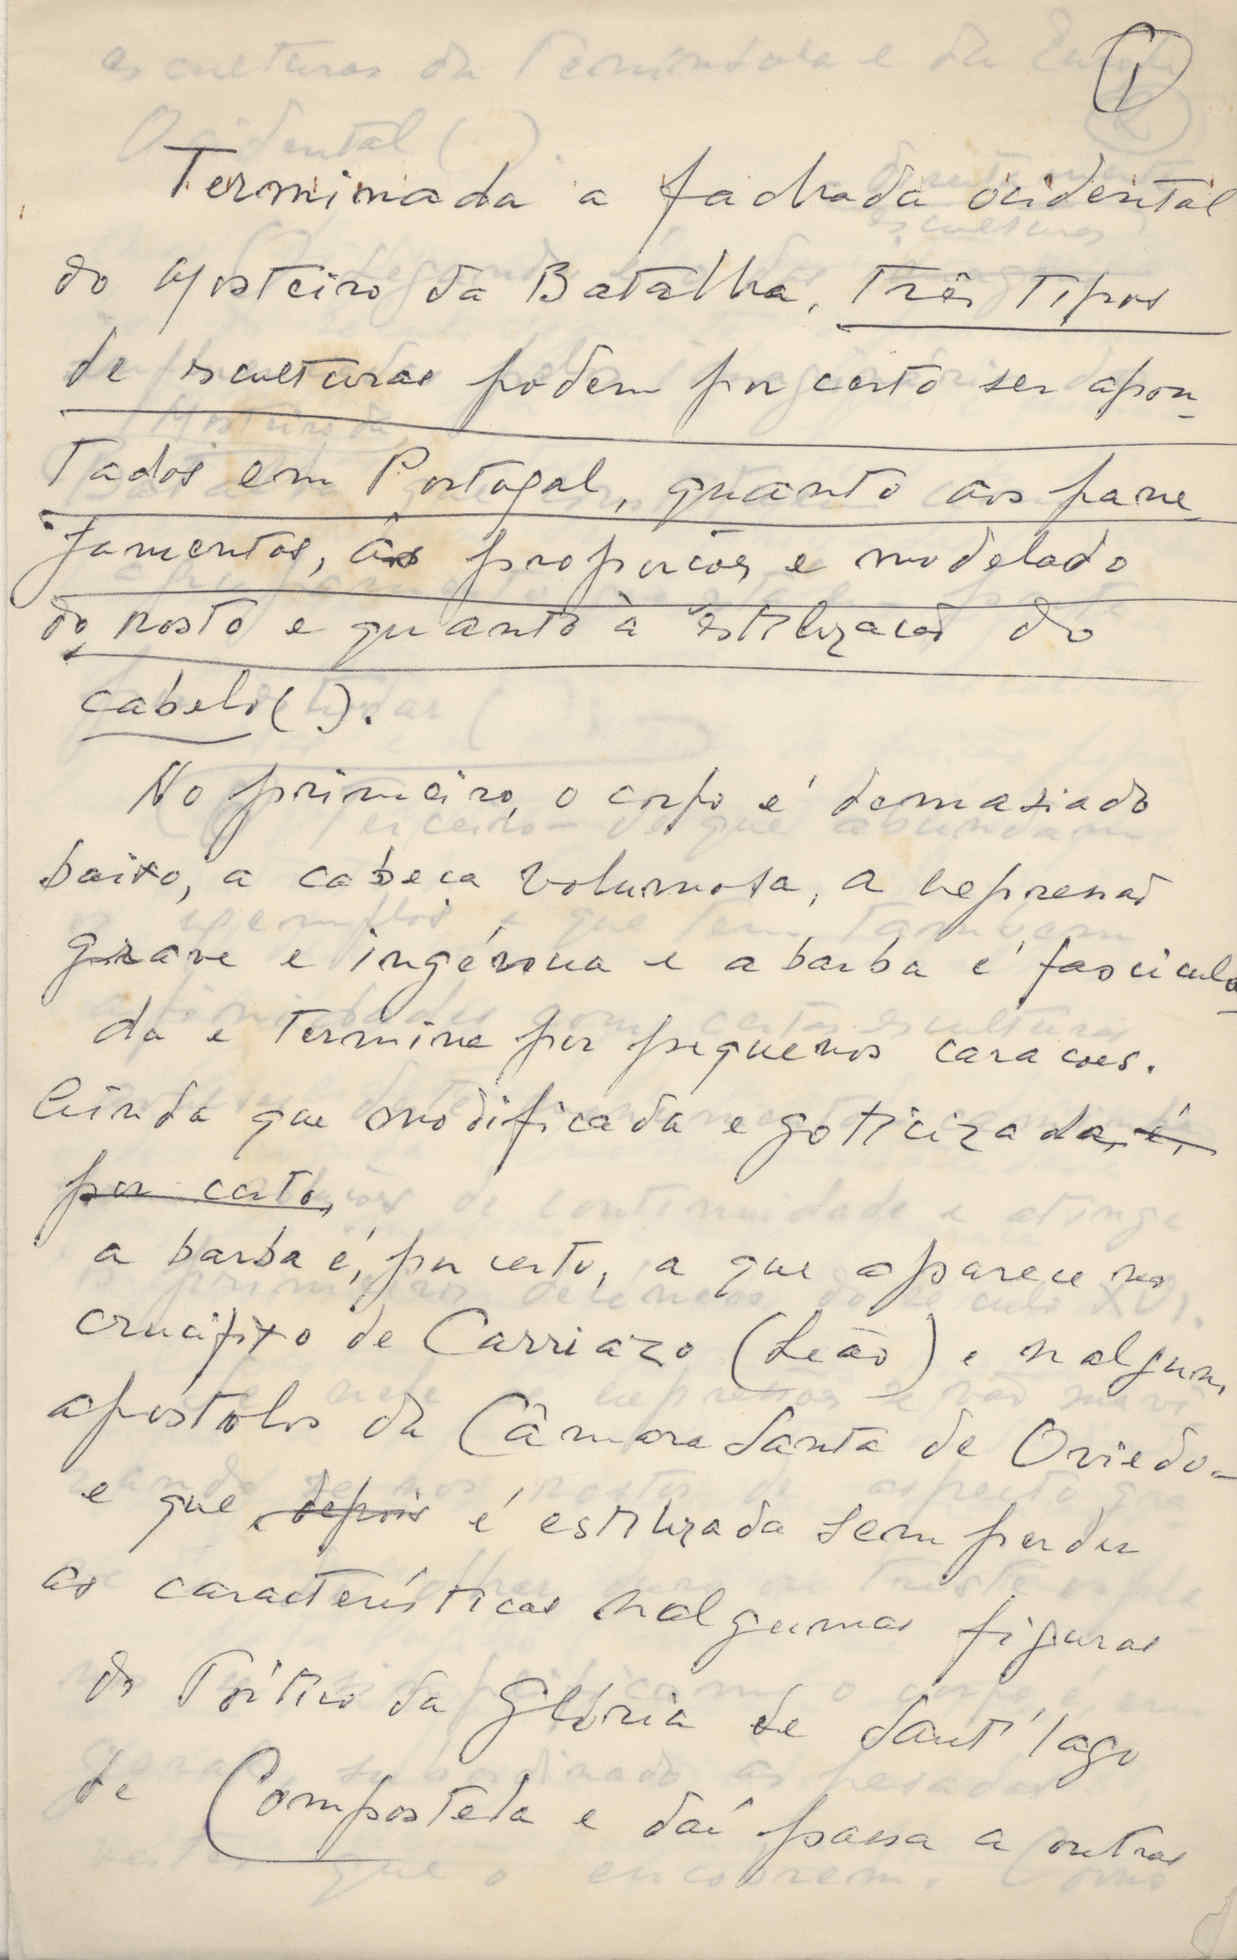 1
Terminada a fachada ocidental
do Mosteiro da Batalha, três tipos
de esculturas podem por certo ser apon-
tados em Portugal, quanto aos pane-
jamentos, às proporções e modelado
do rosto e quanto à estilização do
cabelo ( ).
No primeiro, o corpo é demasiado
baixo, a cabeça volumosa, a expressão
grave e ingénua e a barba é fascicula-
da e termina por pequenos caracóes.
Ainda que modificada e goticizada, é,
por certo,
a barba é, por certo, a que aparece no
crucifixo de Carriazo (Leão) e nalguns
apóstolos da Câmara Santa de Oviedo-
e que depois é estilizada sem perder
as características nalgumas figuras
do Pórtico da Glória de Sant'Iago
de Compostela e daí passa a outras